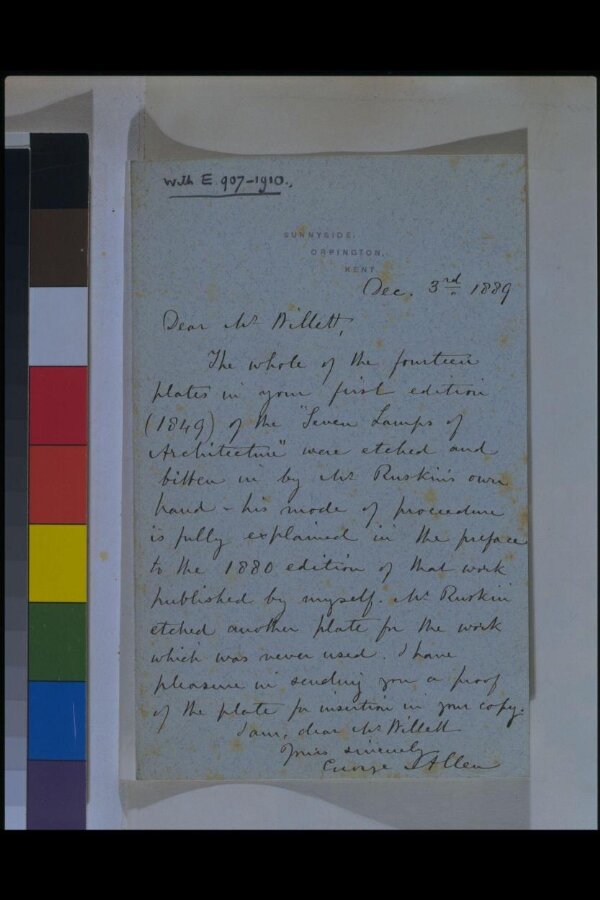 With E. 907-1910.,
SUNNYSIDE,
ORPINGTON,
KENT
Dec. 3rd 1889
Dear Mr Willett,
The whole of the fourteen
plates in your first edition
(1849) of the "Seven Lamps of
Architecture" were etched and
bitten in by Mr Ruskin's own
hand - his mode of proceedure
is fully explained in the preface
to the 1880 edition of that work
published by myself. Mr Ruskin
etched another plate for the work
which was never used. I have
pleasure in sending you a proof
of the plate for insertion in your copy.
I am, dear Mr Willett
Yours sincerely
George Allen